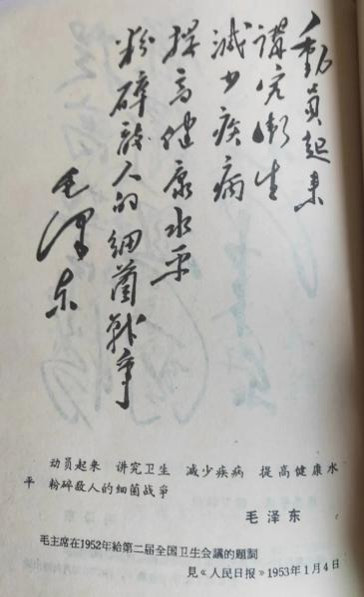 動員起来
講究衛生
减少疾病
提高健康水平
粉碎敌人的细菌战争
毛泽东
动员起来 讲究卫生 减少疾病 提高健康水
平 粉碎敌人的细菌战爭
毛泽东
毛主席在1952年給第二届全国卫生会議的題詞
見《人民日报》1953年1月4日